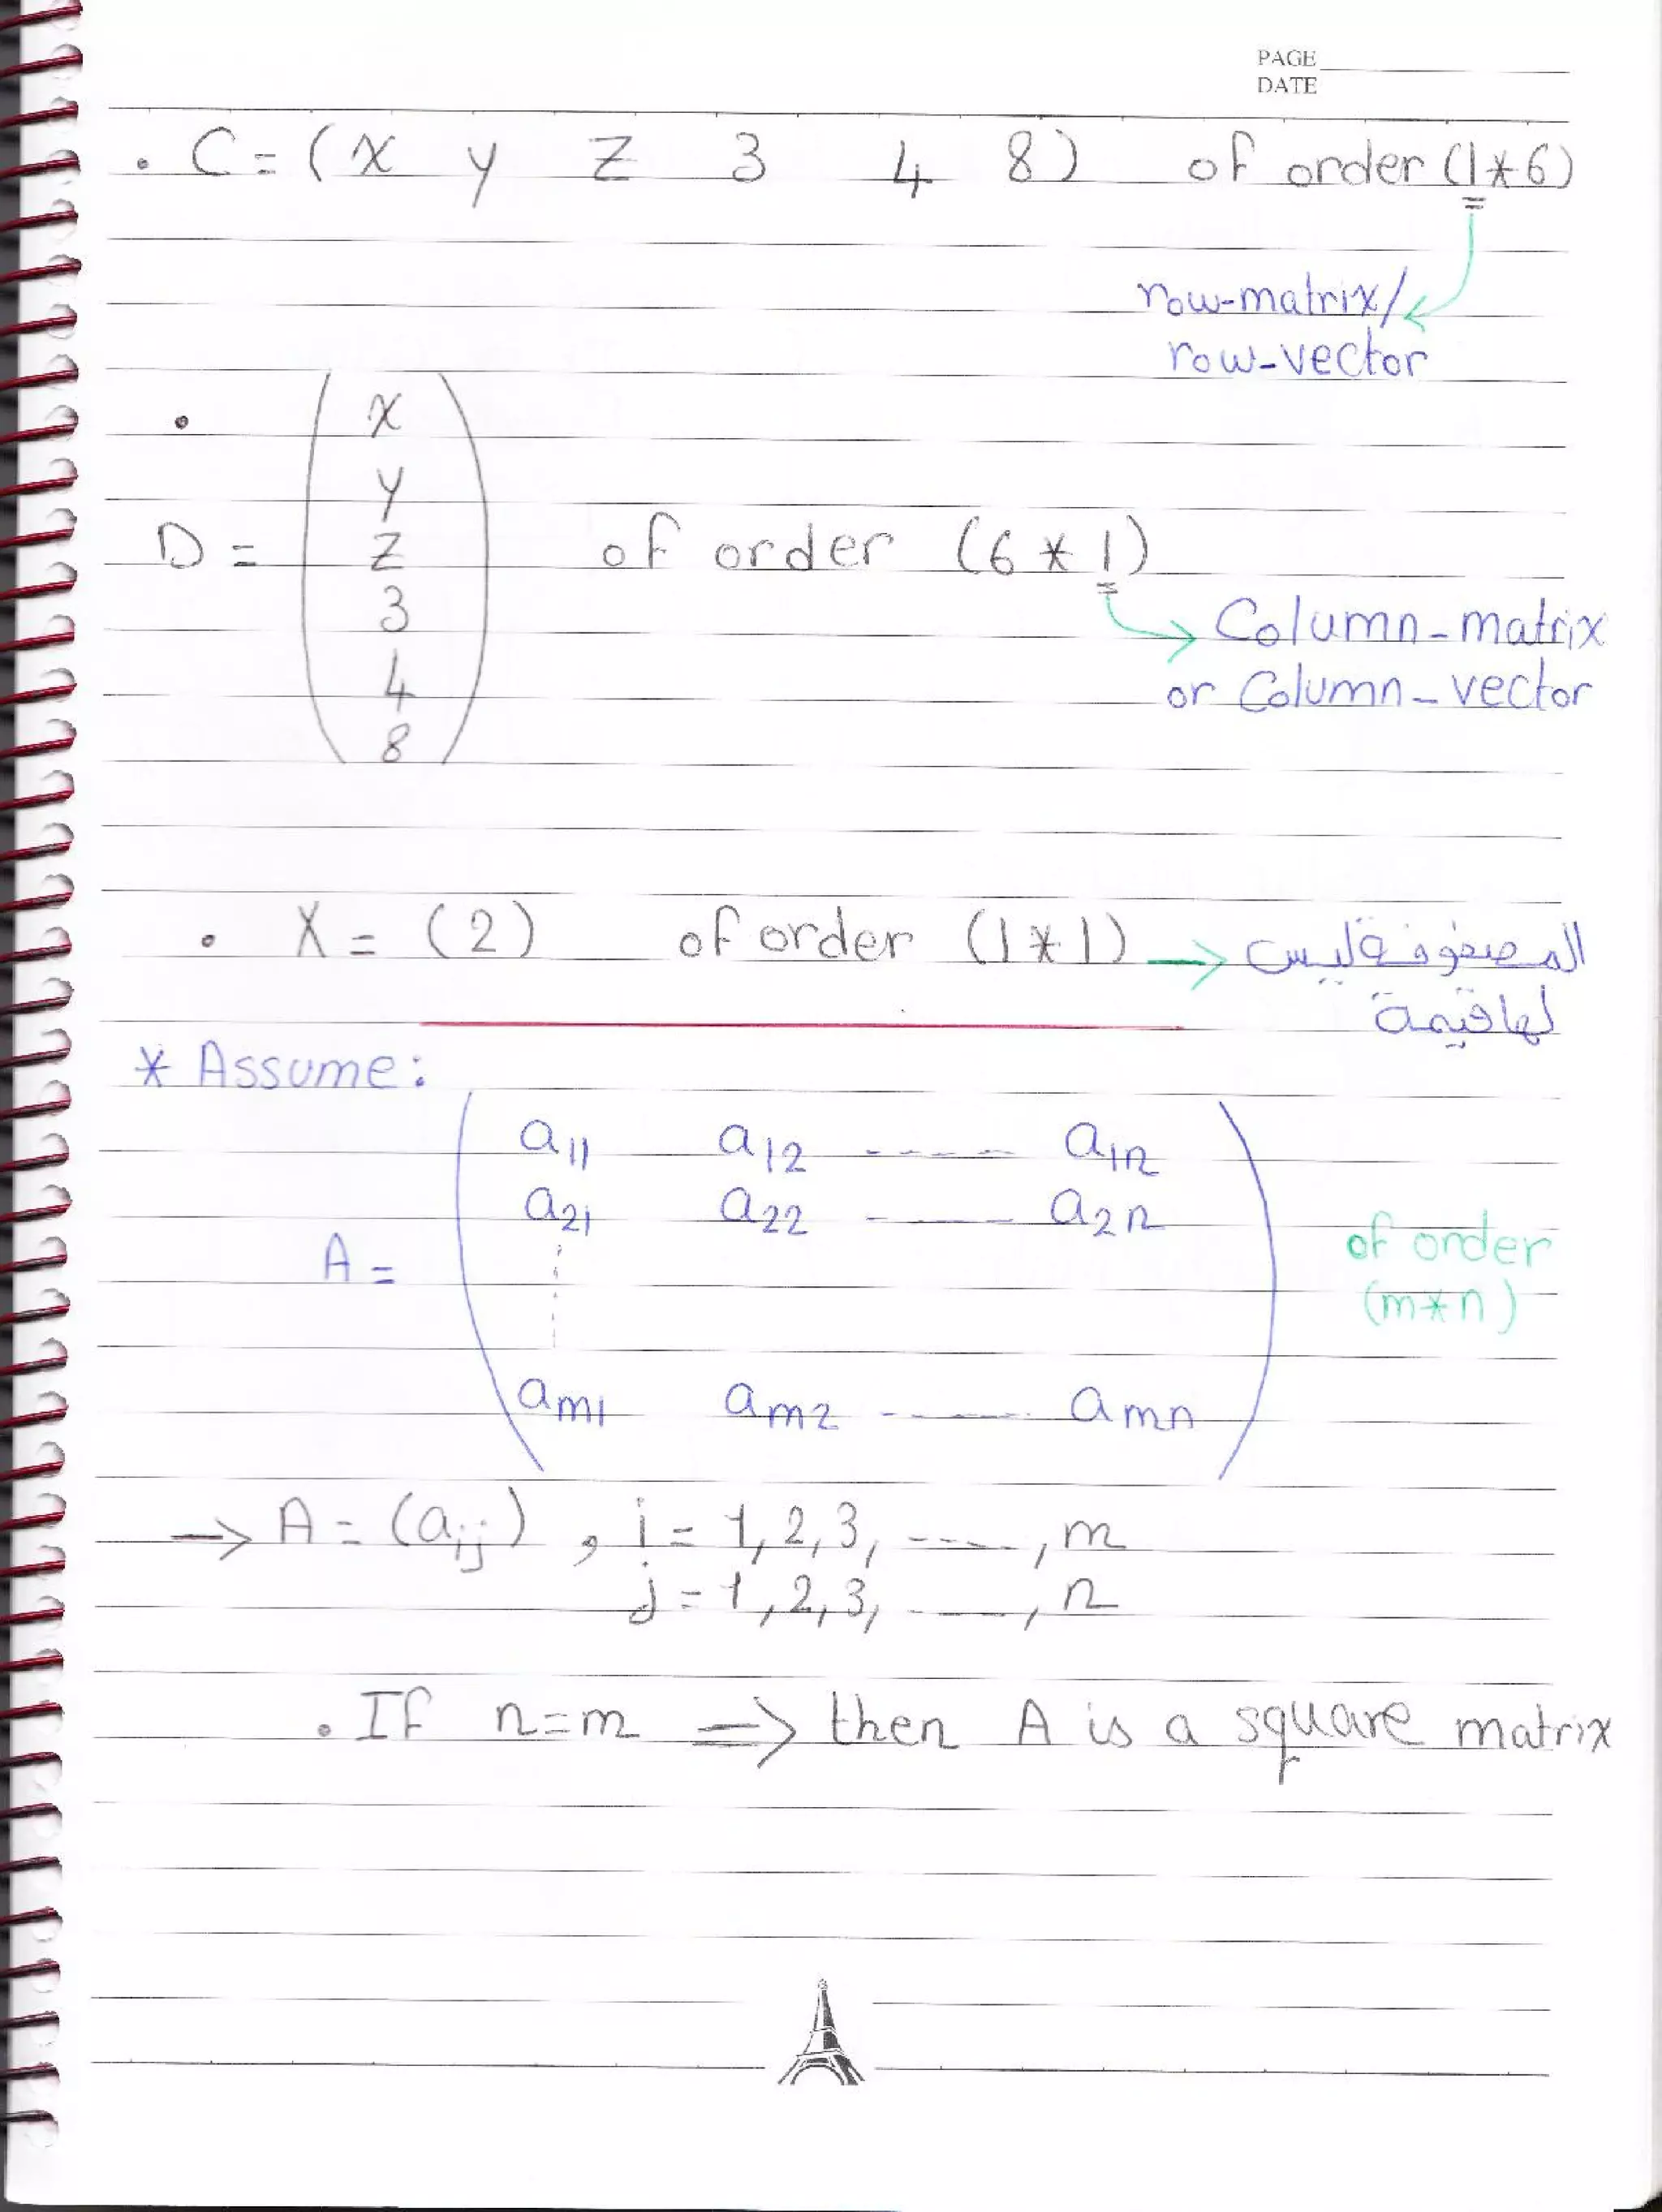 PAGE
DATE
• C = ( x y z 3 4 8 ) of order (1*6)
row-matrix/
row-vector
•
x
y
D = z of order (6 * 1)
3
Column-matrix
4
or Column-vector
8
• X = (2) of order (1*1) → المصفوفة ليس
لها قيمة
* Assume:
a11 a12 ----- a1n
a21 a22 ----- a2n
A =
of order
(m*n)
am1 am2 ----- amn
→ A = (aij) , i = 1, 2, 3, ----, m
j = 1, 2, 3, ----, n
• If n=m => then A is a square matrix